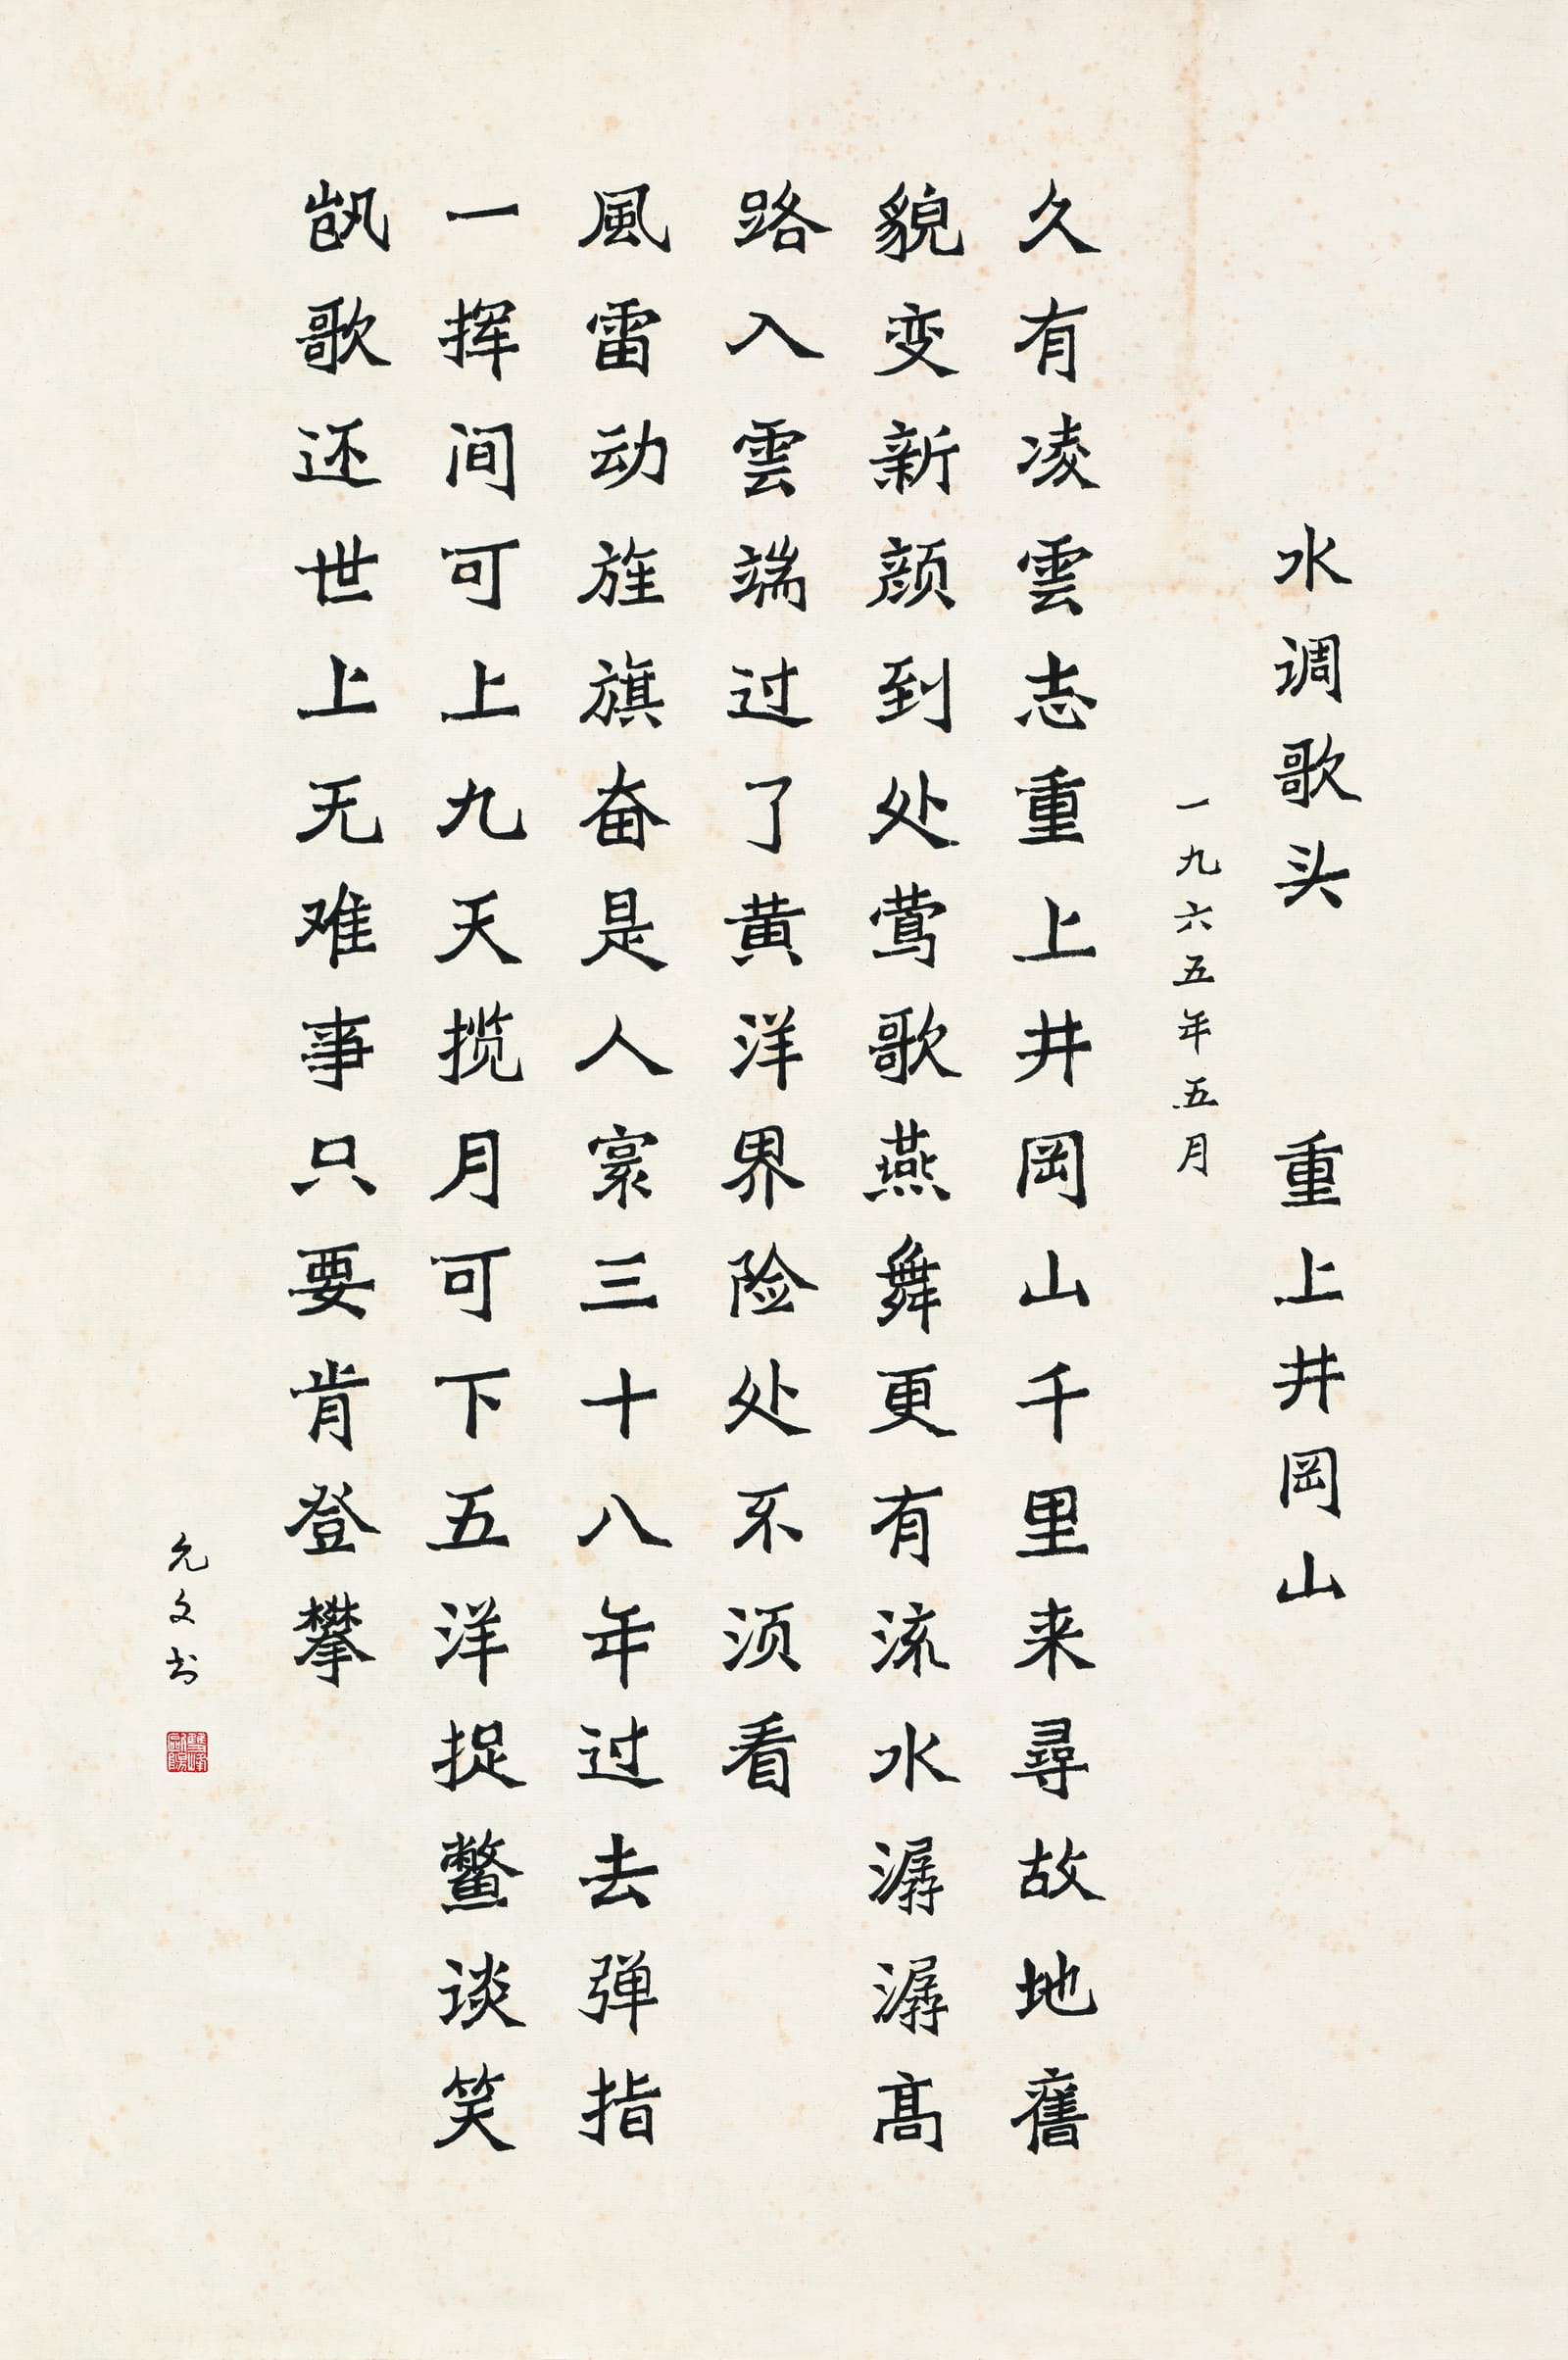 水调歌头 重上井岡山
一九六五年五月
久有凌雲志重上井岡山千里来尋故地舊
貌变新颜到处莺歌燕舞更有流水潺潺髙
路入雲端过了黄洋界险处不须看
風雷动旌旗奋是人寰三十八年过去弹指
一挥间可上九天揽月可下五洋捉鳖谈笑
凯歌还世上无难事只要肯登攀
允文书